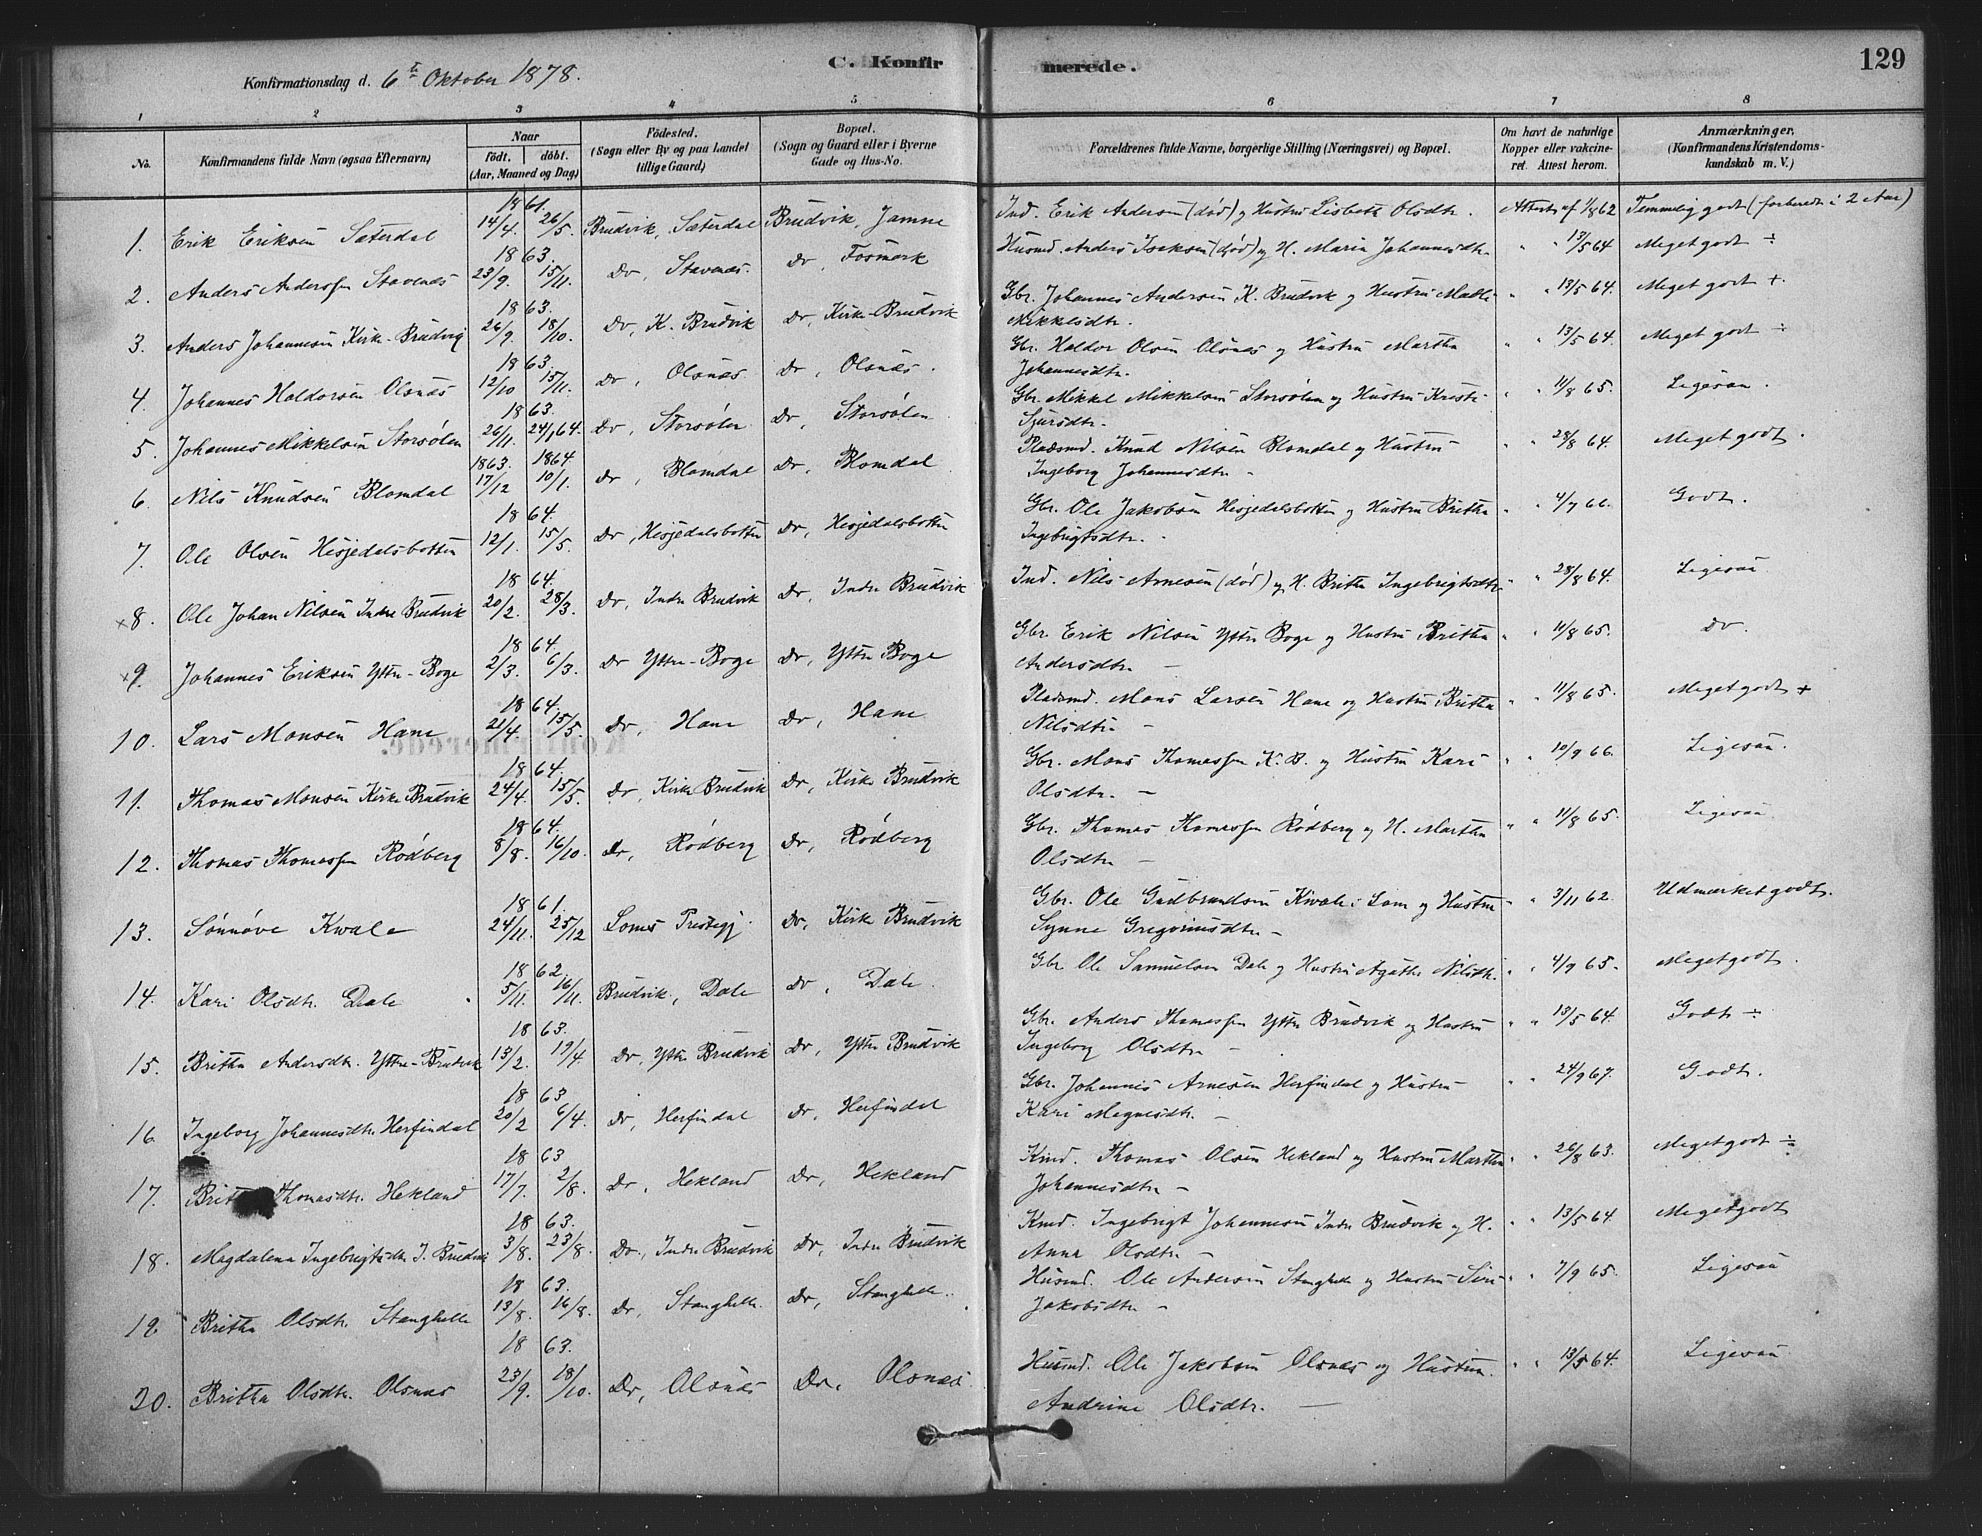 Konfirmationsdag d. 6te Oktober 1878.
C. Konfirmerede.
129
1 2 3 4 5 6 7 8
No. | Konfirmandens fulde Navn (ogsaa Efternavn) | Naar födt. döbt. (Aar, Maaned og Dag) | Födested. (Sogn eller By og paa Landet tillige Gaard) | Bopæl. (Sogn og Gaard eller i Byerne Gade og Hus-No. | Forældrenes fulde Navne, borgerlige Stilling (Næringsvei) og Bopæl. | Om havt de naturlige Kopper eller vakcineret. Attest herom. | Anmærkninger. (Konfirmandens Kristendomskundskab m. V.)
1. Erik Eriksen Sæterdal 1861. 14/4. 26/5. Brudvik, Sæterdal Brudvik, Jamne Ind. Erik Andersen (död) og Hustru Lisbeth Olsdtr. Attest af 1/8 62 Temmelig godt (forberedt i 2 Aar)
2. Anders Anderssen Stavenæs 1863. 23/9. 15/11. Do, Stavenæs. Do, Fosmark Husmd. Anders Isaksen (död) og H. Maria Johannesdtr. " " 13/5 64 Meget godt ÷
3. Anders Johannesen Kirke-Brudvig 1863. 26/9. 18/10. Do, K. Brudvik Do, Kirke-Brudvik Gbr. Johannes Andersen K. Brudvik og Hustru Malli Mikkelsdtr. " " 13/5 64. Meget godt +.
4. Johannes Haldorsen Olsnæs 1863. 12/10 15/11. Do, Olsnæs. Do, Olsnæs. Gbr. Haldor Olsen Olsnæs og Hustru Martha Johannesdtr. " " 13/5 64. Meget godt ÷
5. Johannes Mikkelsen Storsølen 1863. 26/11. 24/1 64. Do, Storsølen Do, Storsølen Gbr. Mikkel Mikkelsen Storsølen og Hustru Kristi Sjursdtr. " " 11/8 65. Ligesaa.
6. Nils Knudsen Blomdal 1863. 17/12 1864 10/1. Do, Blomdal Do, Blomdal Pladsmd. Knud Nilsen Blomdal og Hustru Ingeborg Johannesdtr. " " 28/8 64. Meget godt.
7. Ole Olsen Hesjedalsbotten 1864. 12/1. 15/5. Do, Hesjedalsbotten Do, Hesjedalsbotten Gbr. Ole Jakobsen Hesjedalsbotten og Hustru Britha Ingebrigtsdtr. " " 4/7 66. Godt.
×8. Ole Johan Nilsen Indre Brudvik 1864. 20/2. 28/3. Do, Indre Brudvik Do, Indre Brudvik Ind. Nils Arnesen (död) og H. Britha Ingebrigtsdtr " " 28/8 64. Ligesaa
×9. Johannes Eriksen Yttre-Boge 1864. 2/3. 6/3. Do Yttre-Boge Do, Yttre Boge Gbr. Erik Nilsen Yttre Boge og Hustru Britha Andersdtr. " " 11/8 65. Do.
10. Lars Monsen Hane 1864. 21/4. 15/5. Do, Hane Do, Hane Pladsmd. Mons Larsen Hane og Hustru Britha Nilsdtr " " 11/8 65. Meget godt +
11. Thomas Monsen Kirke Brudvik 1864. 24/4. 15/5. Do, Kirke Brudvik Do, Kirke Brudvik Gbr. Mons Thomassen K. B. og Hustru Kari Olsdtr. " " 10/9 66. Ligesaa.
12. Thomas Thomassen Rödberg 1864. 8/8. 16/10. Do, Rödberg Do, Rödberg Gbr. Thomas Thomassen Rödberg og H. Martha Olsdtr " " 11/8 65. Ligesaa
13. Sönnöve Kwale 1861. 24/11. 25/12 Lomes Prestegj. Do, Kirke Brudvik Gbr. Ole Gudbrandsen Kwale i Lom og Hustru Synne Gregoriusdtr. " 3/11 62. Udmærket godt.
14. Kari Olsdtr. Dale 1862. 5/11. 16/11. Brudvik, Dale Do, Dale. Gbr Ole Samuelsen Dale og Hustru Agathe Nilsdtr. " " 4/9 65. Meget godt.
15. Britha Andersdtr. Yttre-Brudvik 1863. 13/2. 19/4 Do, Yttre Brudvik Do, Yttre Brudvik Gbr. Anders Thomassen Yttre Brudvik og Hustru Ingeborg Olsdtr " " 13/5 64. Godt ÷
16. Ingeborg Johannesdtr. Herfindal 1863 20/2 6/4. Do, Herfindal Do, Herfindal Gbr. Johannes Arnesen Herfindal og Hustru Kari Magnesdtr. " " 24/9 67. Godt.
17. Britha Thomasdtr. Hekland 1863 17/7. 2/8. Do, Hekland Do, Hekland Kmd. Thomas Olsen Hekland og Hustru Martha Johannesdtr " " 26/8 63. Meget godt ÷
18. Magdalena Ingebrigtsdtr I. Brudvik 1863. 3/8. 23/8. Do, Indre Brudvik Do, Indre Brudvik Kmd. Ingebrigt Johannesen Indre Brudvik og H. Anna Olsdtr " " 13/5 64. Meget godt
19. Britha Olsdtr. Stanghelle 1863. 13/8. 16/8. Do, Stanghelle. Do, Stanghelle. Husmd. Ole Andersen Stanghelle og Hustru Siri Jakobsdtr " " 7/9 65. Ligesaa
20. Britha Olsdtr. Olsnæs 1863. 23/9. 18/10. Do, Olsnæs Do, Olsnæs Husmd. Ole Jakobsen Olsnæs og Hustru Andrine Olsdtr. " " 13/5 64. Ligesaa